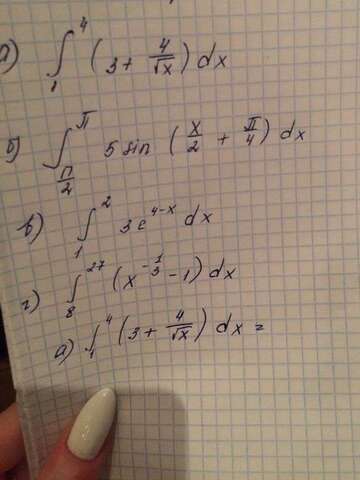 а) ∫₁⁴ (3 + 4/√x) dx
б) ∫_{π/2}^{π} 5 sin (x/2 + π/4) dx
в) ∫₁² 3e^{4-x} dx
г) ∫₈²⁷ (x^{-1/3} - 1) dx
а) ∫₁⁴ (3 + 4/√x) dx =